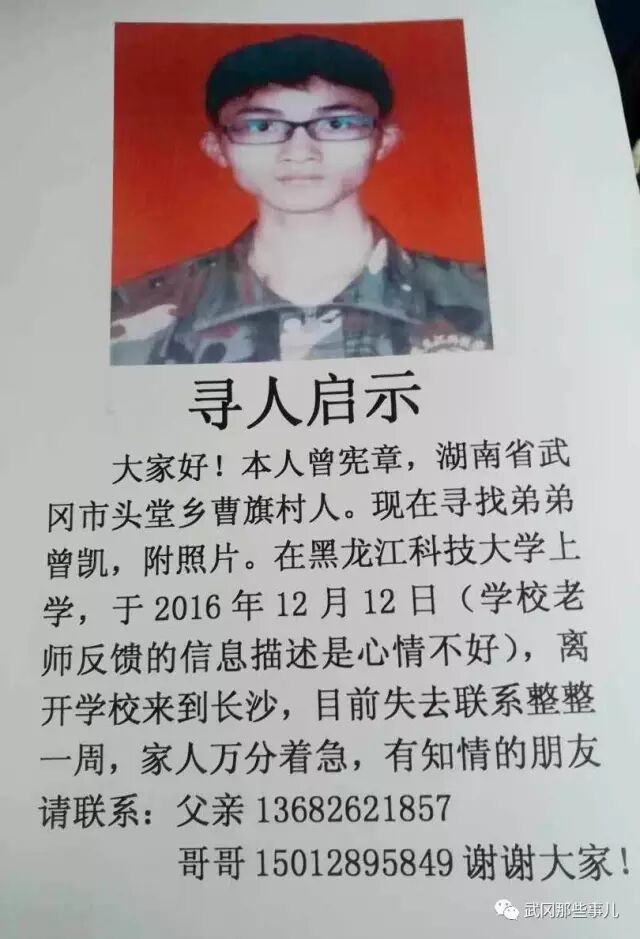 寻人启示
大家好！本人曾宪章，湖南省武
冈市头堂乡曹旗村人。现在寻找弟弟
曾凯，附照片。在黑龙江科技大学上
学，于 2016 年 12 月 12 日（学校老
师反馈的信息描述是心情不好），离
开学校来到长沙，目前失去联系整整
一周，家人万分着急，有知情的朋友
请联系：父亲 13682621857
哥哥 15012895849 谢谢大家！
武冈那些事儿